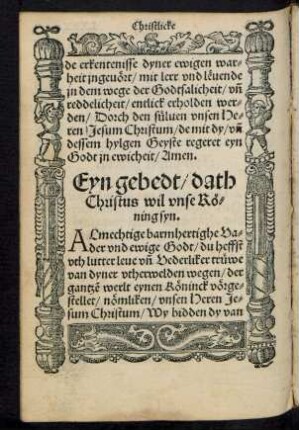 Christlicke
de erkentenisse dyner ewigen war-
heit jngevört/ mit lerr vnd lëuende
jn dem wege der Godtsalicheit/ vñ
reddelicheit/ entlick erholden wer-
den/ Dorch den süluen vnsen He-
ren Jesum Christum/ de mit dy/ vñ
dessem hylgen Geyste regeret eyn
Godt jn ewicheit/ Amen.
Eyn gebedt/ dath
Christus wil vnse Kö-
ning syn.
ALmechtige barmhertighe Va-
der vnd ewige Godt/ du heffst
vth lutter leue vñ Vederliker trüwe
van dyner vtherwelden wegen/ der
gantze werlt eynen Köninck vörge-
stellet/ nömliken/ vnsen Heren Je-
sum Christum/ Wy bidden dy van